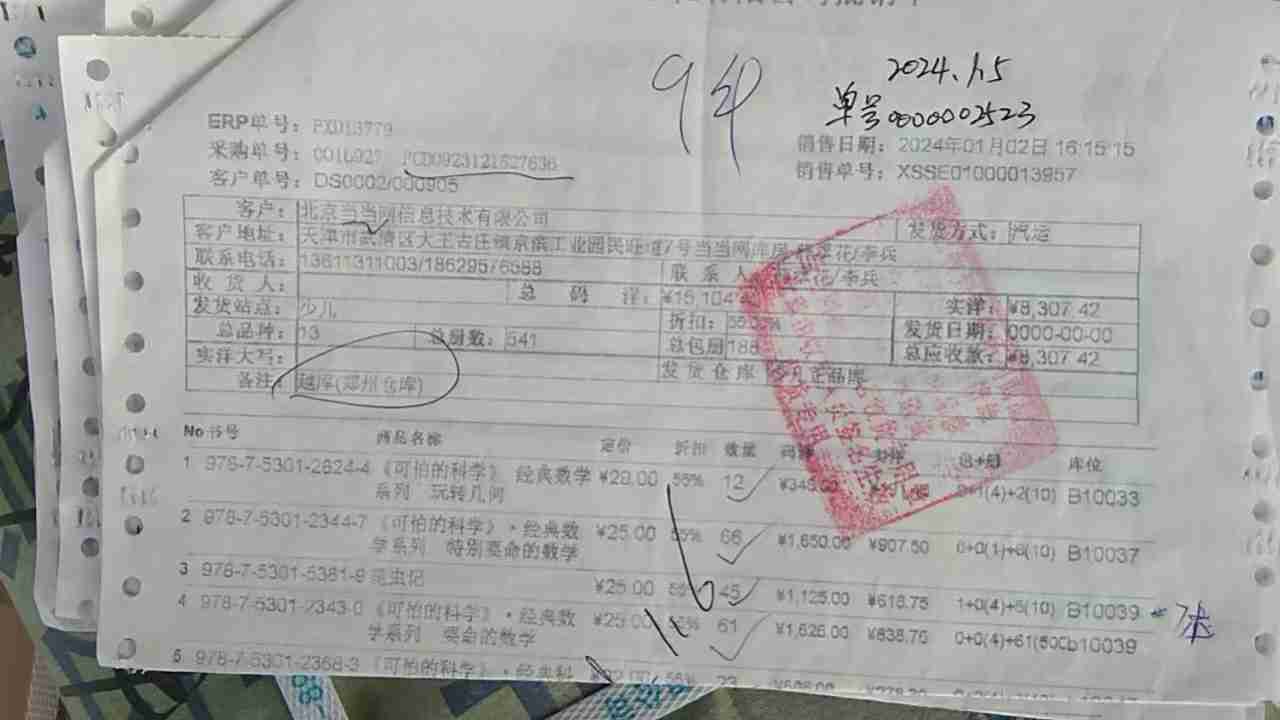 2024.1.15
单号0000002523
ERP单号: PXD13779
销售日期: 2024年01月02日 16:15:15
采购单号: 001L927 PCD0923121527636
销售单号: XSSE01000013957
客户单号: DS0002/000905
客户: 北京当当网信息技术有限公司
发货方式: 汽运
客户地址: 天津市武清区大王古庄镇京滨工业园民旺道7号当当网库房 花/李兵
联系电话: 13611311003/18629576588
联系人 花/李兵
收货人:
总码洋: ¥15,104
实洋: ¥8,307.42
发货站点: 少儿
折扣: 55
发货日期: 0000-00-00
总品种: 13
总册数: 541
总包册 188
总应收款: ¥8,307.42
实洋大写:
发货仓库 正品库
备注: 越库(郑州仓库)
No 书号 商品名称 定价 折扣 数量 码洋 实洋 包+册 库位
1 978-7-5301-2824-4 《可怕的科学》 经典数学 ¥29.00 55% 12 ¥348.00 0+1(4)+2(10) B10033
系列 玩转几何
2 978-7-5301-2344-7 《可怕的科学》·经典数 ¥25.00 55% 66 ¥1,650.00 ¥907.50 6+0(1)+6(10) B10037
学系列 特别要命的数学
3 978-7-5301-5381-9 昆虫记 ¥25.00 55% 45 ¥1,125.00 ¥618.75 1+0(4)+5(10) B10039
4 978-7-5301-2343-0 《可怕的科学》·经典数 ¥25.00 55% 61 ¥1,525.00 ¥838.75 0+0(4)+61(60Cb10039
学系列 要命的数学
5 978-7-5301-2368-3 《可怕的科学》·经典科 55% 23